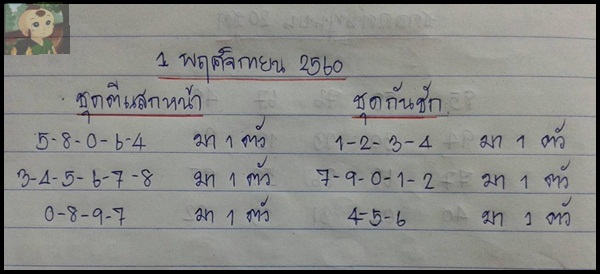 1 พฤศจิกายน 2560
ชุดตีแสกหน้า ชุดกันชัก
5-8-0-6-4 มา 1 ตัว 1-2-3-4 มา 1 ตัว
3-4-5-6-7-8 มา 1 ตัว 7-9-0-1-2 มา 1 ตัว
0-8-9-7 มา 1 ตัว 4-5-6 มา 1 ตัว